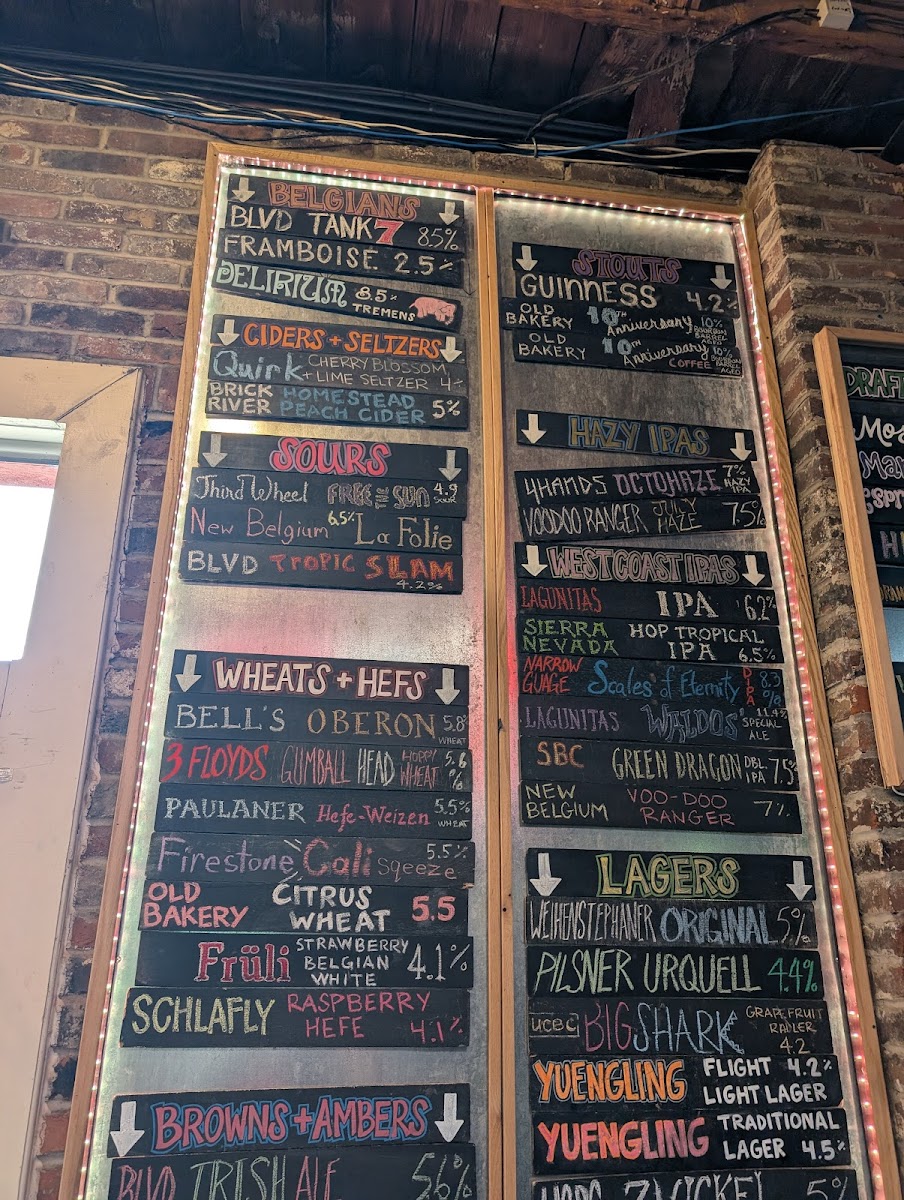 BELGIANS
BLVD TANK 7 8.5%
FRAMBOISE 2.5%
DELIRIUM 8.5%
TREMENS
CIDERS + SELTZERS
Quirk CHERRY BLOSSOM
+ LIME SELTZER 4%
BRICK RIVER HOMESTEAD PEACH CIDER 5%
SOURS
Third Wheel FREE THE SUN 4.9 SOUR
New Belgium 6.5% La Folie
BLVD TROPIC SLAM
4.2%
WHEATS + HEFS
BELL'S OBERON 5.8
WHEAT
3 FLOYDS GUMBALL HEAD HOPPY WHEAT 5.6 %
PAULANER Hefe-Weizen 5.5%
WHEAT
Firestone Cali Sqeeze 5.5%
OLD BAKERY CITRUS WHEAT 5.5
Früli STRAWBERRY BELGIAN WHITE 4.1%
SCHLAFLY RASPBERRY HEFE 4.1%
BROWNS + AMBERS
BLVD IRISH ALE 5.6%
STOUTS
GUINNESS 4.2%
OLD BAKERY 10TH Anniversary 10% BOURBON BARREL AGED
OLD BAKERY 10TH Anniversary COFFEE 10% BOURBON BARREL AGED
HAZY IPAS
4HANDS OCTOHAZE 7% HAZY IPA
VOODOO RANGER JUICY HAZE 7.5%
WEST COAST IPAS
LAGUNITAS IPA 6.2%
SIERRA NEVADA HOP TROPICAL IPA 6.5%
NARROW GUAGE Scales of Eternity DIPA 8.3 %
LAGUNITAS WALDOS 11.4%
SPECIAL ALE
SBC GREEN DRAGON DBL. IPA 7.5%
NEW BELGIUM VOO-DOO RANGER 7%
LAGERS
WEIHENSTEPHANER ORIGINAL 5%
PILSNER URQUELL 4.4%
UCBC BIG SHARK GRAPEFRUIT RADLER
4.2
YUENGLING FLIGHT 4.2%
LIGHT LAGER
YUENGLING TRADITIONAL
LAGER 4.5%
ZWICKEL 5%
DRAFT